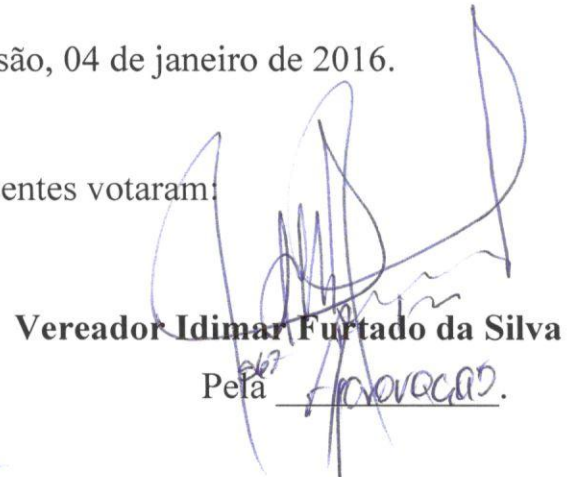 são, 04 de janeiro de 2016.
entes votaram:
Vereador Idimar Furtado da Silva
Pela Aprovação.